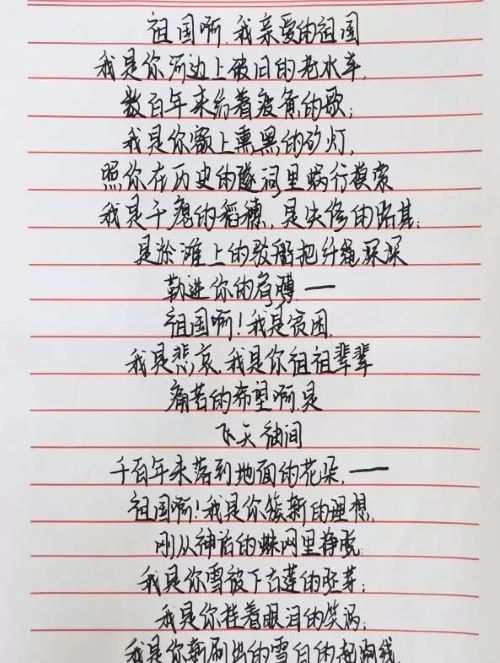 祖国啊,我亲爱的祖国
我是你河边上破旧的老水车,
数百年来纺着疲惫的歌;
我是你额上熏黑的矿灯,
照你在历史的隧洞里蜗行摸索
我是干瘪的稻穗,是失修的路基;
是淤滩上的驳船把纤绳深深
勒进你的肩膊,——
祖国啊!我是贫困,
我是悲哀,我是你祖祖辈辈
痛苦的希望啊,是
飞天袖间
千百年未落到地面的花朵,——
祖国啊!我是你簇新的理想,
刚从神话的蛛网里挣脱
我是你雪被下古莲的胚芽;
我是你挂着眼泪的笑涡;
我是你新刷出的雪白的起跑线